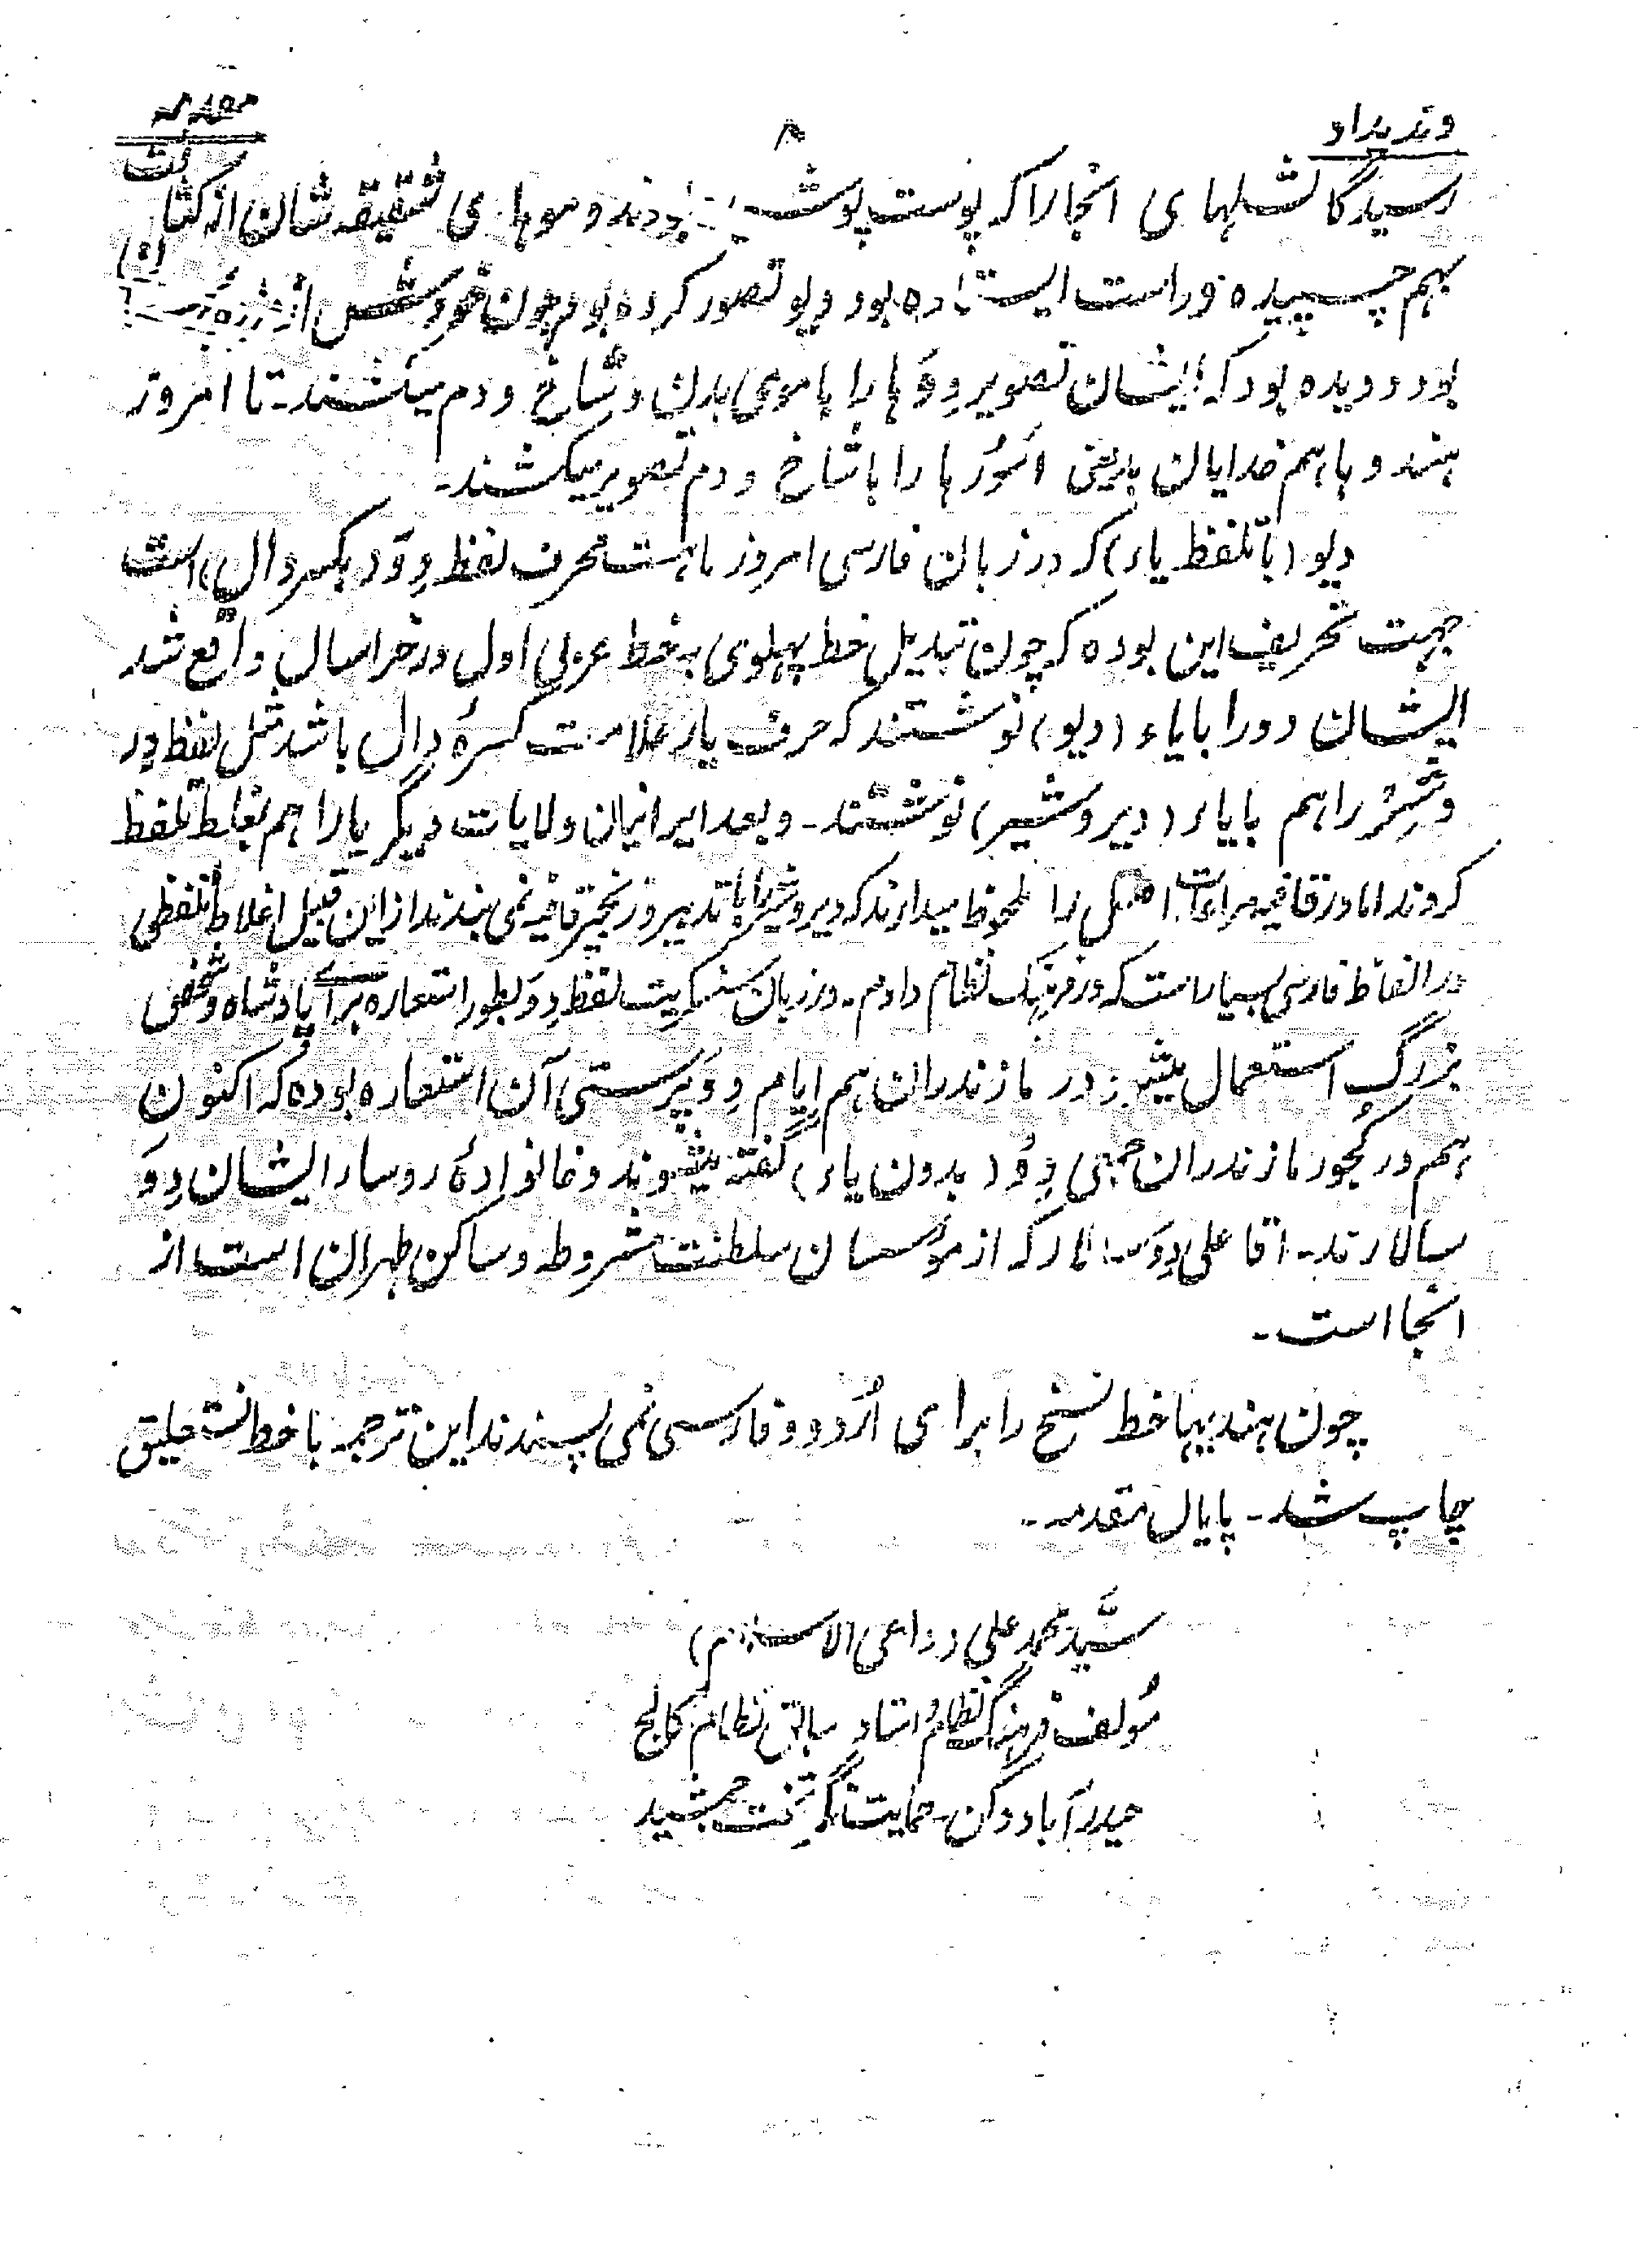 وندیداد
۸
مقدمه
رسید گالشهای انجا را که پوست پوشیده بودند و موهای شقیقه شان از کثافت
بهم چسپیده و راست ایستاده بود دیو تصور کرده بود چون خودش از
بود و دیده بود که ایشان تصویر دِوَها را با موی بدن و شاخ و دم میکشند - تا امروز
هندوها هم خدایان بد یعنی اَسُورَها را با شاخ و دم تصویر میکشند -
دیو (با تلفظ یاء) که در زبان فارسی امروز ما هست محرف لفظ دِوَ (بکسر دال) است
جهت تحریف این بوده که چون تبدیل خط پهلوی به خط عربی اول در خراسان واقع شد
ایشان دو را با یاء (دیو) نوشتند که حرف یاء علامت کسرهٔ دال باشد مثل لفظ دِر
و شِر را هم با یاء (دیر و شیر) نوشتند - و بعد ایرانیان ولایات دیگر یا را هم بغلط تلفظ
کردند اما در قافیه مراعات اصل را ملحوظ میدارند که دیر و شیر را با تدبیر و زنجیر قافیه نمی بندند از این قبیل اغلاط تلفظی
در الفاظ فارسی بسیار است که در فرهنگ نظام دادم - در زبان سنسکریت لفظ دِوَ بطور استعاره برای پادشاه و شخص
بزرگ استعمال میشود در مازندران هم ایام دِوَ پرستی آن استعاره بوده که اکنون
هم در کجور مازندران جمعی دِوْ (بدون یاء) گفته میشوند و خانوادهٔ روساء ایشان دِوَ
سالارند - اقا علی دِوَسالار که از موسسان سلطنت مشروطه و ساکن طهران است از
انجا است -
چون هندیها خط نسخ را برای اُردو و فارسی نمی پسندند این ترجمه با خط نستعلیق
چاپ شد - پایان مقدمه -
سیّد محمد علی (داعی الاسلام)
مُولف فرهنگ نظام و استاد سابق نظام کالج
حیدرآباد دکن - حمایت نگر تخت جمشید